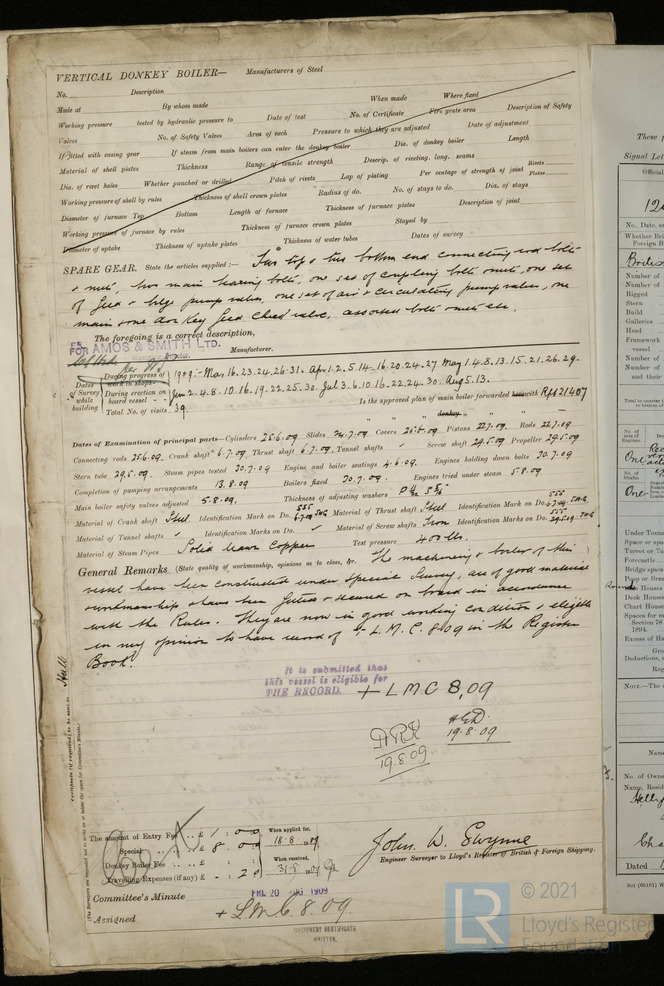 VERTICAL DONKEY BOILER— Manufacturers of Steel
No. Description
Made at By whom made When made Where fixed
Working pressure tested by hydraulic pressure to Date of test No. of Certificate Fire grate area Description of Safety
Valves No. of Safety Valves Area of each Pressure to which they are adjusted Date of adjustment
If fitted with easing gear If steam from main boilers can enter the donkey boiler Dia. of donkey boiler Length
Material of shell plates Thickness Range of tensile strength Descrip. of riveting, long. seams
Dia. of rivet holes Whether punched or drilled Pitch of rivets Lap of plating Per centage of strength of joint Rivets Plates
Working pressure of shell by rules Thickness of shell crown plates Radius of do. No. of stays to do. Dia. of stays
Diameter of furnace Top Bottom Length of furnace Thickness of furnace plates Description of joint
Working pressure of furnace by rules Thickness of furnace crown plates Stayed by
Diameter of uptake Thickness of uptake plates Thickness of water tubes Dates of survey
SPARE GEAR. State the articles supplied:— Two top & two bottom end connecting rod bolts
& nuts, two main bearing bolts, one set of coupling bolts & nuts, one set
of feed & bilge pump valves, one set of air & circulating pump valves, one
main & one donkey feed check valve, assorted bolts & nuts etc.
The foregoing is a correct description,
FOR AMOS & SMITH LTD.
Manufacturer.
Dates of Survey while building
During progress of work in shops - - 1909:- Mar 16.23.24.26.31. Apr 1.2.5.14.16.20.24.27 May 1.4.8.13.15.21.26.29.
During erection on board vessel - - - Jun 2.4.8.10.16.19.22.25.30 Jul 3.6.10.16.22.24.30 Aug 5.13.
Total No. of visits 39
Is the approved plan of main boiler forwarded herewith
" " " donkey " "
Dates of Examination of principal parts—Cylinders 25.6.09 Slides 24.7.09 Covers 25.6.09 Pistons 22.7.09 Rods 22.7.09
Connecting rods 25.6.09 Crank shaft 6.7.09 Thrust shaft 6.7.09 Tunnel shafts ✓ Screw shaft 29.5.09 Propeller 29.5.09
Stern tube 29.5.09 Steam pipes tested 30.7.09 Engine and boiler seatings 4.6.09 Engines holding down bolts 20.7.09
Completion of pumping arrangements 13.8.09 Boilers fixed 20.7.09 Engines tried under steam 5.8.09
Main boiler safety valves adjusted 5.8.09 Thickness of adjusting washers
Material of Crank shaft Steel Identification Mark on Do. 555 6.7.09 Material of Thrust shaft Steel Identification Mark on Do. 555 6.7.09
Material of Tunnel shafts ✓ Identification Marks on Do. ✓ Material of Screw shafts Iron Identification Marks on Do. 555 29.5.09
Material of Steam Pipes Solid drawn Copper Test pressure 400 lbs.
General Remarks (State quality of workmanship, opinions as to class, &c. The machinery & boiler of this
vessel have been constructed under Special Survey, are of good material
& workmanship & have been fitted & secured on board in accordance
with the Rules. They are now in good working condition & eligible
in my opinion to have record of + L.M.C. 8.09 in the Register
Book.
It is submitted that
this vessel is eligible for
THE RECORD. + LMC 8,09
19.8.09
19.8.09
Hull
Certificate (if required) to be sent to
The amount of Entry Fee .. £ 1 : 0 : 0 When applied for,
Special .. .. £ 8 : 0 : 0 18.8.09
Donkey Boiler Fee .. .. £ : : When received,
Travelling Expenses (if any) £
John W. Gwynne
Engineer Surveyor to Lloyd's Register of British & Foreign Shipping.
Committee's Minute FRI. 20 AUG 1909
Assigned + L.M.C. 8.09
MACHINERY CERTIFICATE
WRITTEN.
These p
Signal Let
Official
No., Date, a
Whether Br
Foreign B
British
Number of
Number of
Rigged
Stern
Build
Galleries
Head
Framework
vessel
Number of
Number of
and their
Total to quarter
to bottom of
One
One
Under Tonna
Space or sp
Turret or T
Forecastle
Bridge space
Poop or Br
Houses
Deck Houses
Chart House
Spaces for m
Section 78
1894.
Excess of Ha
Gro
Deductions,
Reg
NOTE.—The
Name
No. of Owne
Name, Resid
Dated
LR
© 2021
Lloyd's Register
Foundation